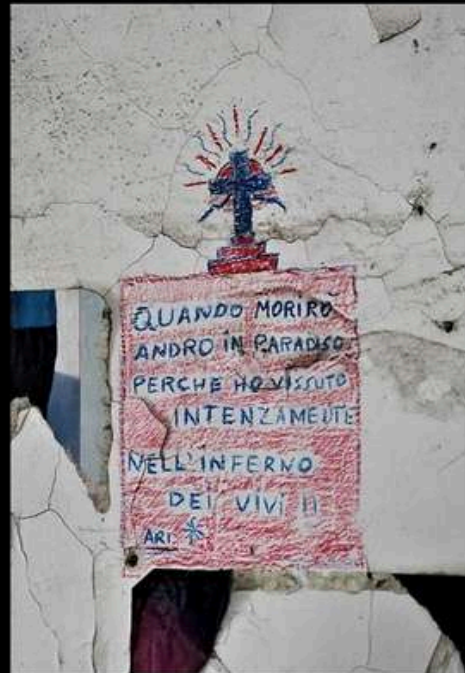 QUANDO MORIRÒ
ANDRO IN PARADISO
PERCHE HO VISSUTO
INTENZAMENTE
NELL'INFERNO
DEI VIVI !!
ARI